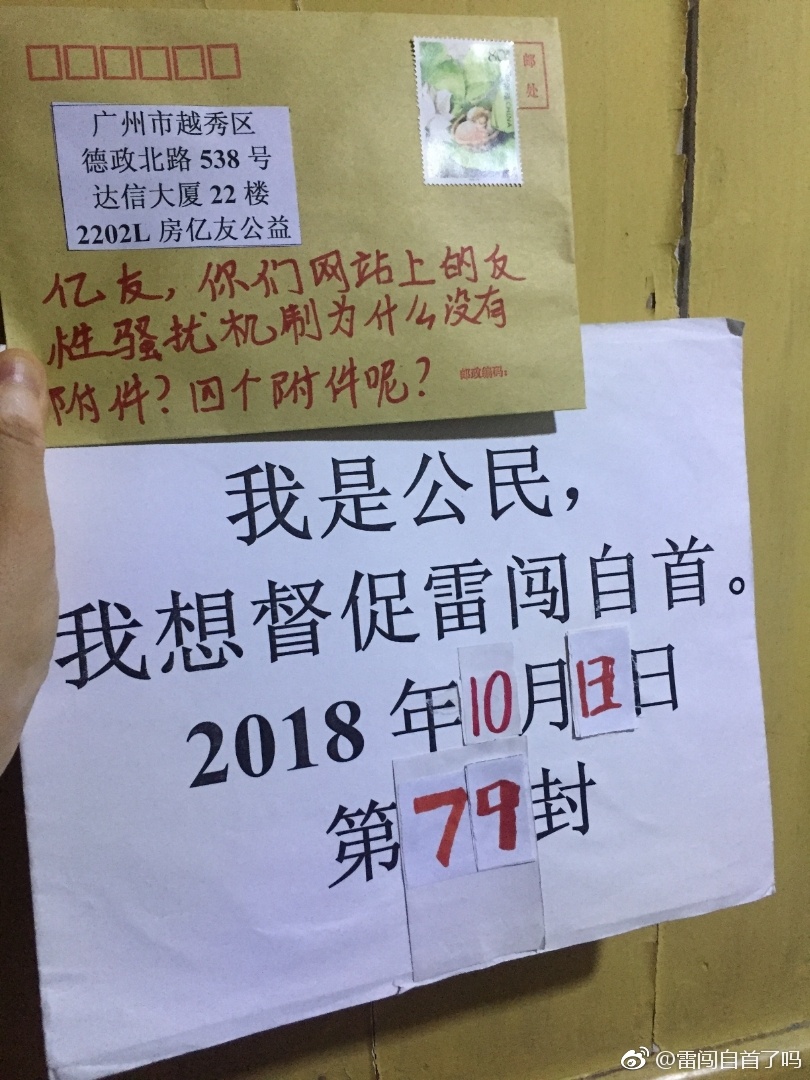 邮
处
广州市越秀区
德政北路 538 号
达信大厦 22 楼
2202L 房亿友公益
亿友，你们网站上的反
性骚扰机制为什么没有
附件？四个附件呢？
邮政编码：
我是公民，
我想督促雷闯自首。
2018 年 10 月 日
第 79 封
@雷闯自首了吗